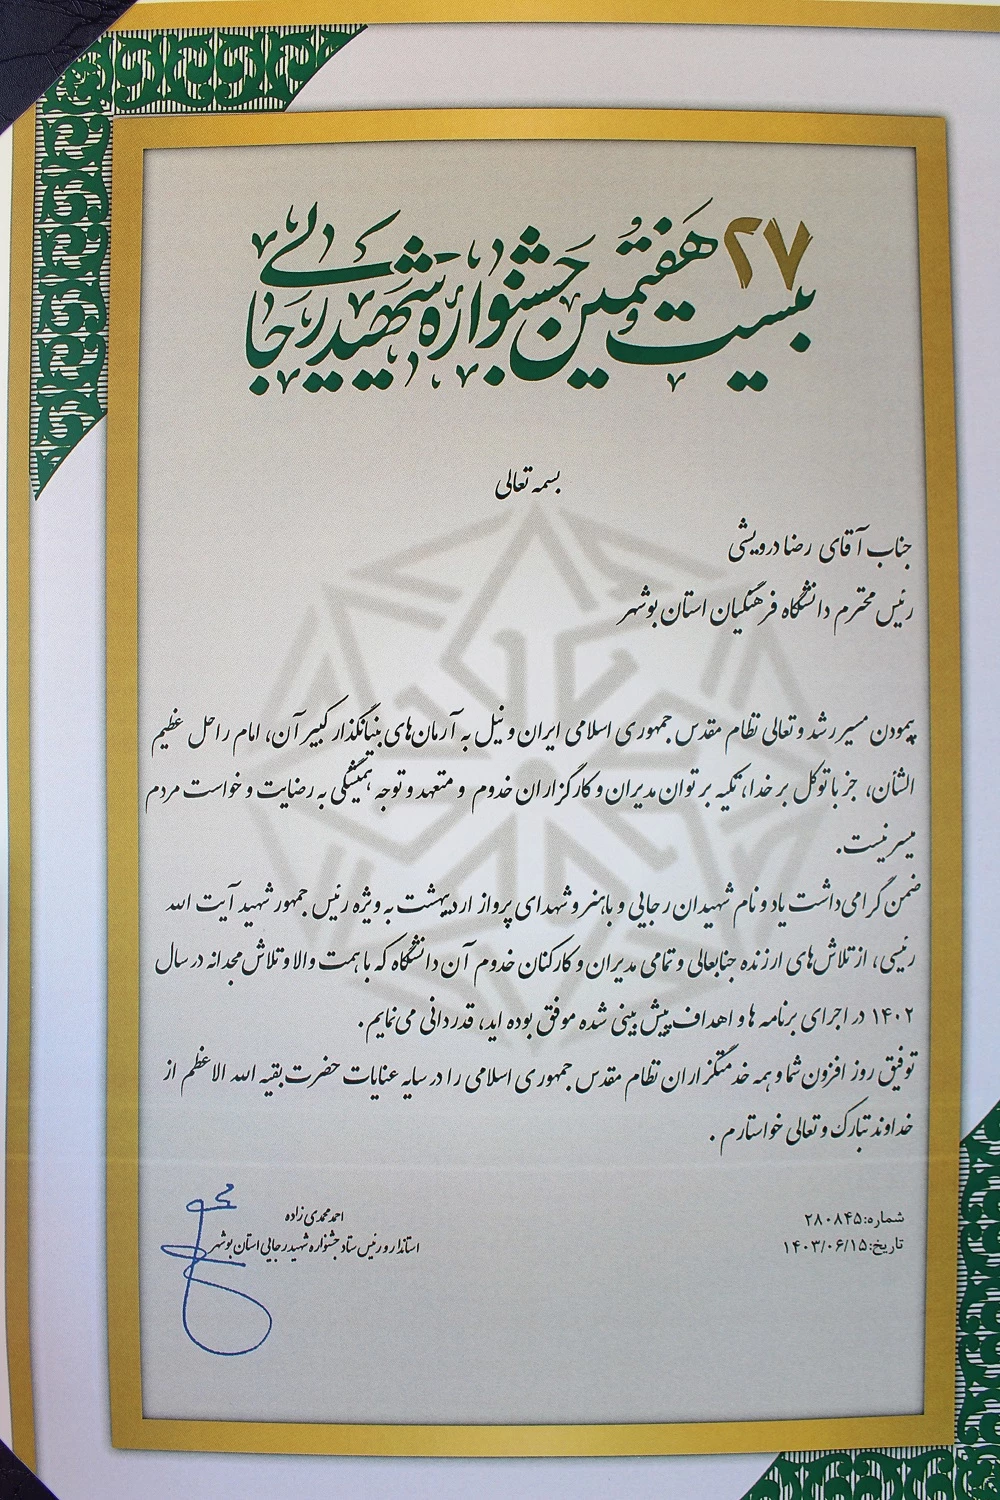 ۲۷
بیست و هفتمین جشنواره شهید رجایی
بسمه تعالی
جناب آقای رضا درویشی
رئیس محترم دانشگاه فرهنگیان استان بوشهر
پیمودن مسیر رشد و تعالی نظام مقدس جمهوری اسلامی ایران و نیل به آرمان‌های بنیانگذار کبیر آن، امام راحل عظیم
الشأن، جز با توکل بر خدا، تکیه بر توان مدیران و کارگزاران خدوم و متعهد و توجه همیشگی به رضایت و خواست مردم
میسر نیست.
ضمن گرامی‌داشت یاد و نام شهیدان رجایی و باهنر و شهدای پرواز اردیبهشت به ویژه رئیس جمهور شهید آیت الله
رئیسی، از تلاش‌های ارزنده جنابعالی و تمامی مدیران و کارکنان خدوم آن دانشگاه که با همت والا و تلاش مجدانه در سال
۱۴۰۲ در اجرای برنامه ها و اهداف پیش بینی شده موفق بوده اید، قدردانی می‌نمایم.
توفیق روز افزون شما و همه خدمتگزاران نظام مقدس جمهوری اسلامی را در سایه عنایات حضرت بقیه الله الاعظم از
خداوند تبارک و تعالی خواستارم.
احمد محمدی زاده
استاندار و رئیس ستاد جشنواره شهید رجایی استان بوشهر
شماره: ۲۸۰۸۴۵
تاریخ: ۱۴۰۳/۰۶/۱۵